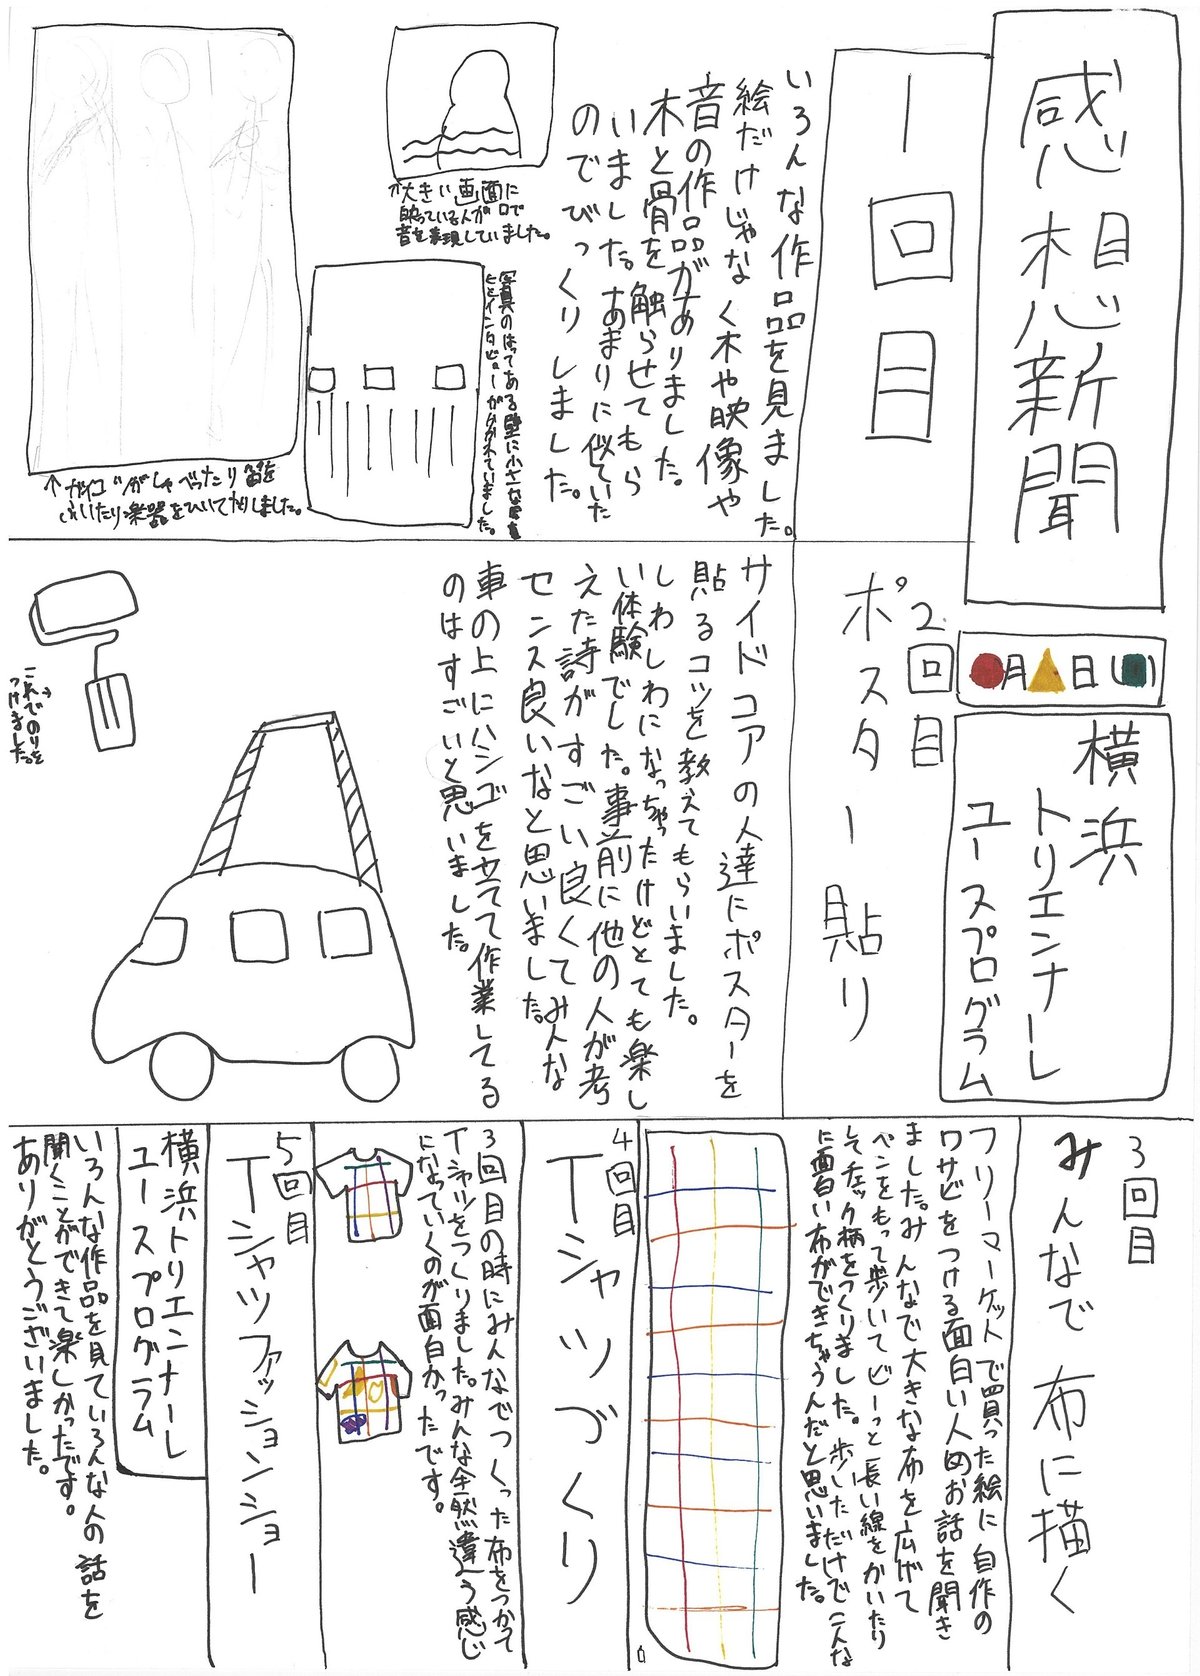 感想新聞
●月▲日(■)
横浜
トリエンナーレ
ユースプログラム
一回目
いろんな作品を見ました。
絵だけじゃなく木や映像や
音の作品がありました。
木と骨を触らせてもら
いました。あまりに似ていた
のでびっくりしました。
↑大きい画面に
映っている人が口で
音を表現していました。
写真のはってある壁に小さな写真
とインタビューがかかれていました。
↑ガイコツがしゃべったり笛を
ふいたり楽器をひいてたりしました。
2回目
ポスター貼り
サイドコアの人達にポスターを
貼るコツを教えてもらいました。
しわしわになっちゃったけどとても楽し
い体験でした。事前に他の人が考
えた詩がすごい良くてみんな
センス良いなと思いました。
車の上にハシゴを立てて作業してる
のはすごいと思いました。
これでのりを
つけました。
3回目
みんなで布に描く
フリーマーケットで買った絵に自作の
ワサビをつける面白い人のお話を聞き
ました。みんなで大きな布を広げて
ペンをもって歩いてビーっと長い線をかいたり
してチェック柄をつくりました。歩しただけでこんな
に面白い布ができちゃうんだと思いました。
4回目
Tシャツづくり
3回目の時にみんなでつくった布をつかって
Tシャツをつくりました。みんな全然違う感じ
になっていくのが面白かったです。
5回目
Tシャツファッションショー
横浜トリエンナーレ
ユースプログラム
いろんな作品を見ていろんな人の話を
聞くことができて楽しかったです。
ありがとうございました。